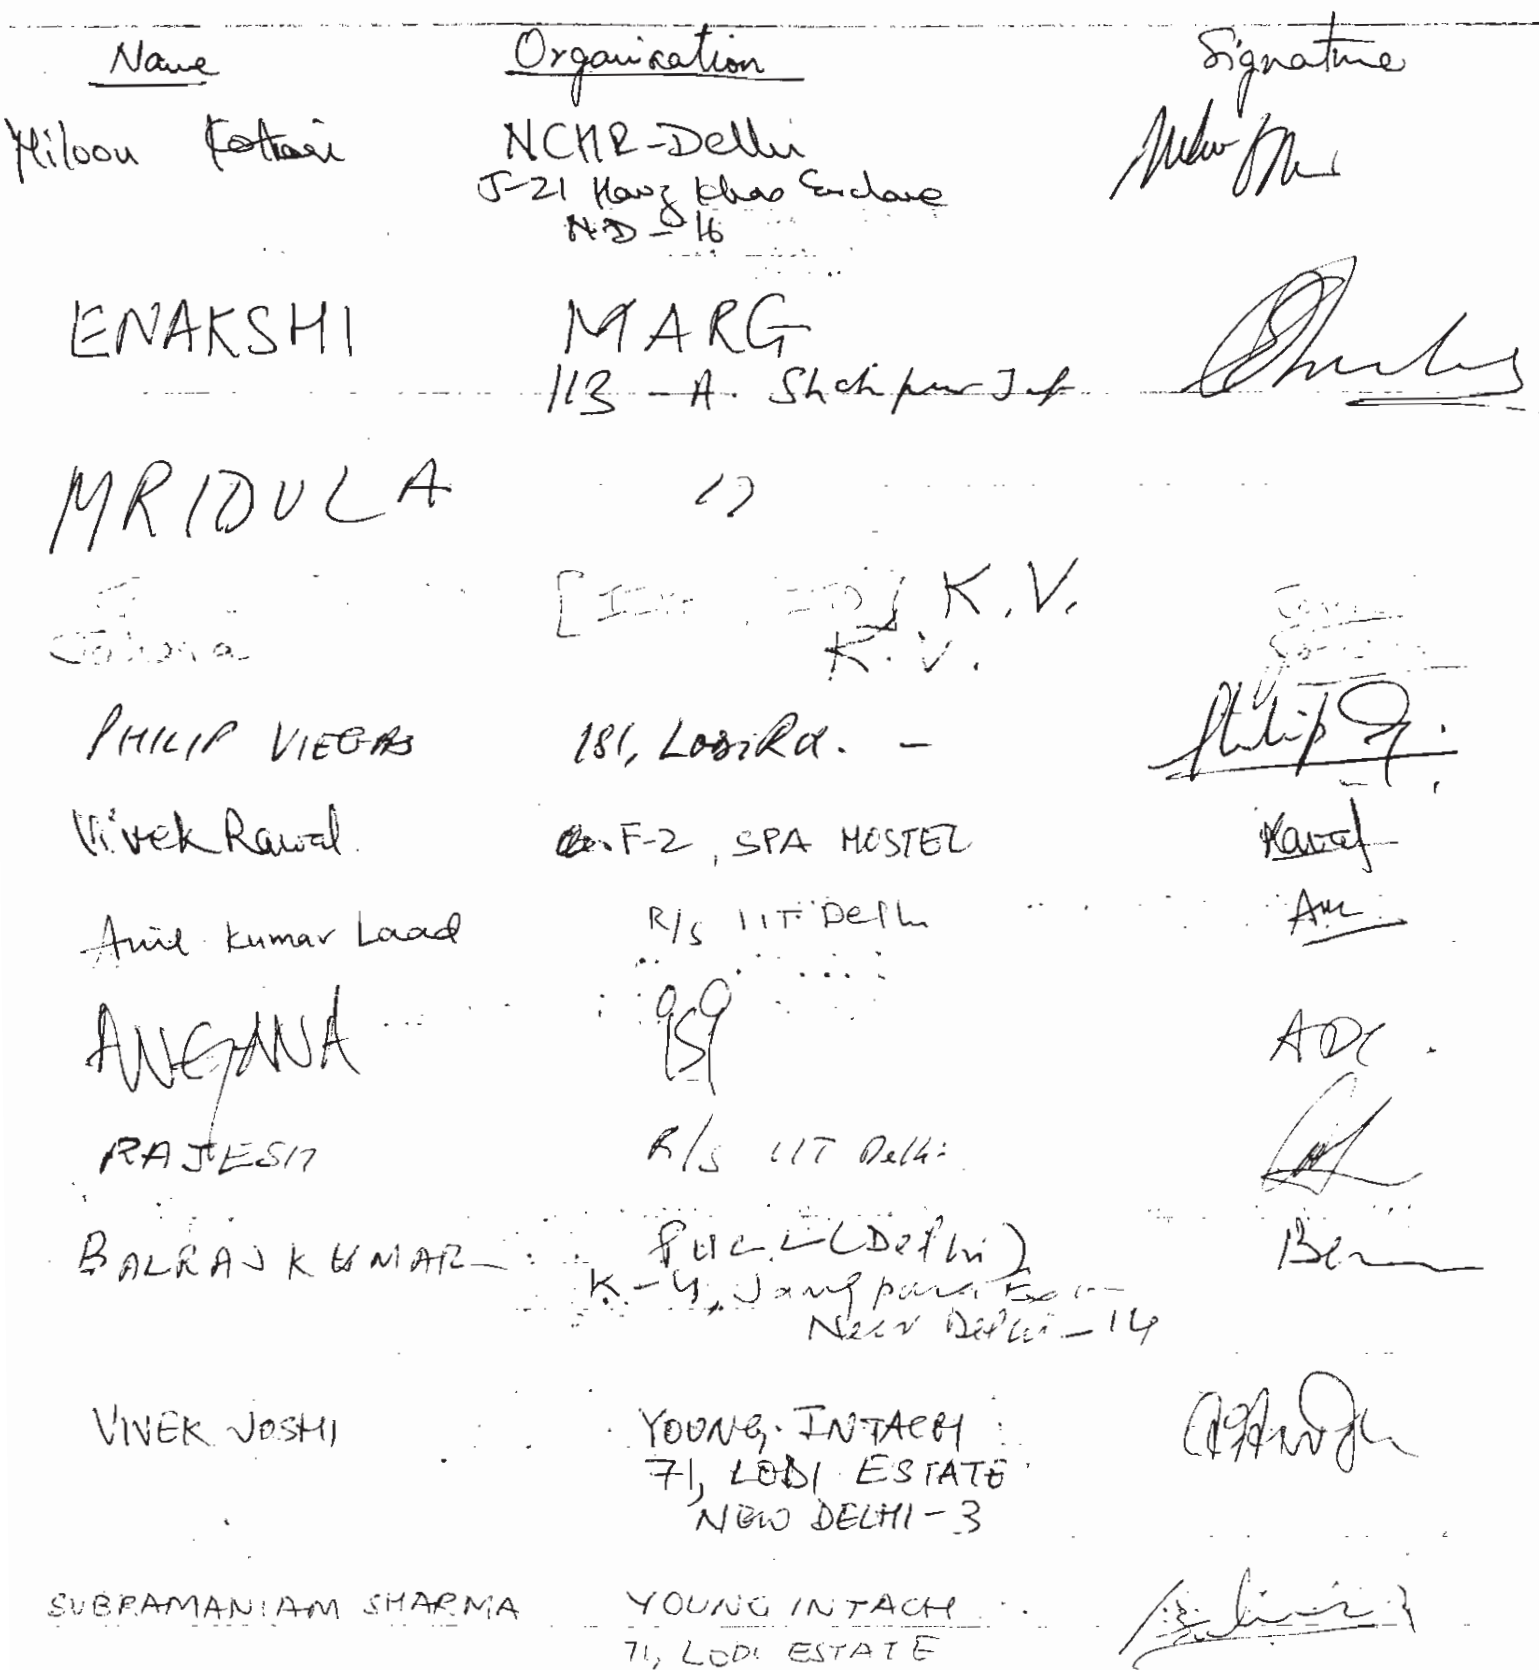 Name Organisation Signature
Miloon Kothari NCHR-Delhi
J-21 Hauz Khas Enclave
N.D - 16
ENAKSHI MARG
113 - A. Shahpur Jat
MRIDULA "
K.V.
K.V.
PHILIP VIEGAS 181, Lodi Rd. - Philip
Vivek Rawal. F-2, SPA HOSTEL Rawal
Anil Kumar Laad R/s IIT Delhi
ANGANA
RAJESH R/s IIT Delhi
BALRAJ KUMAR PUCL (Delhi)
K-4, Jangpura
New Delhi - 14
VIVEK JOSHI YOUNG INTACH
71, LODI ESTATE
NEW DELHI - 3
SUBRAMANIAM SHARMA YOUNG INTACH
71, LODI ESTATE